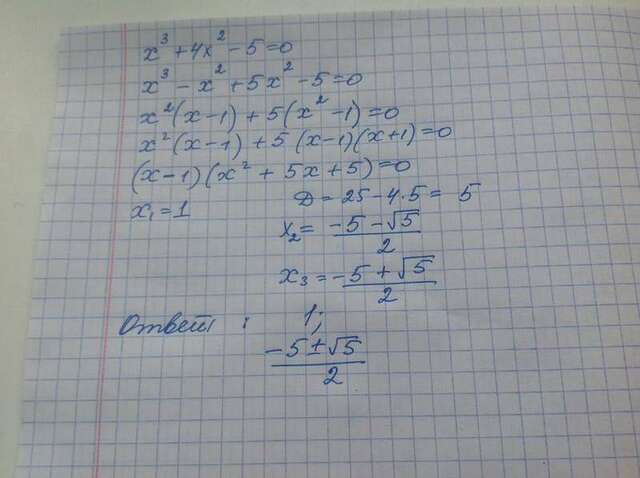 x³ + 4x² - 5 = 0
x³ - x² + 5x² - 5 = 0
x²(x-1) + 5(x²-1) = 0
x²(x-1) + 5(x-1)(x+1) = 0
(x-1)(x² + 5x + 5) = 0
x₁ = 1
D = 25 - 4·5 = 5
x₂ = (-5 - √5)/2
x₃ = (-5 + √5)/2
Ответ: 1;
(-5 ± √5)/2